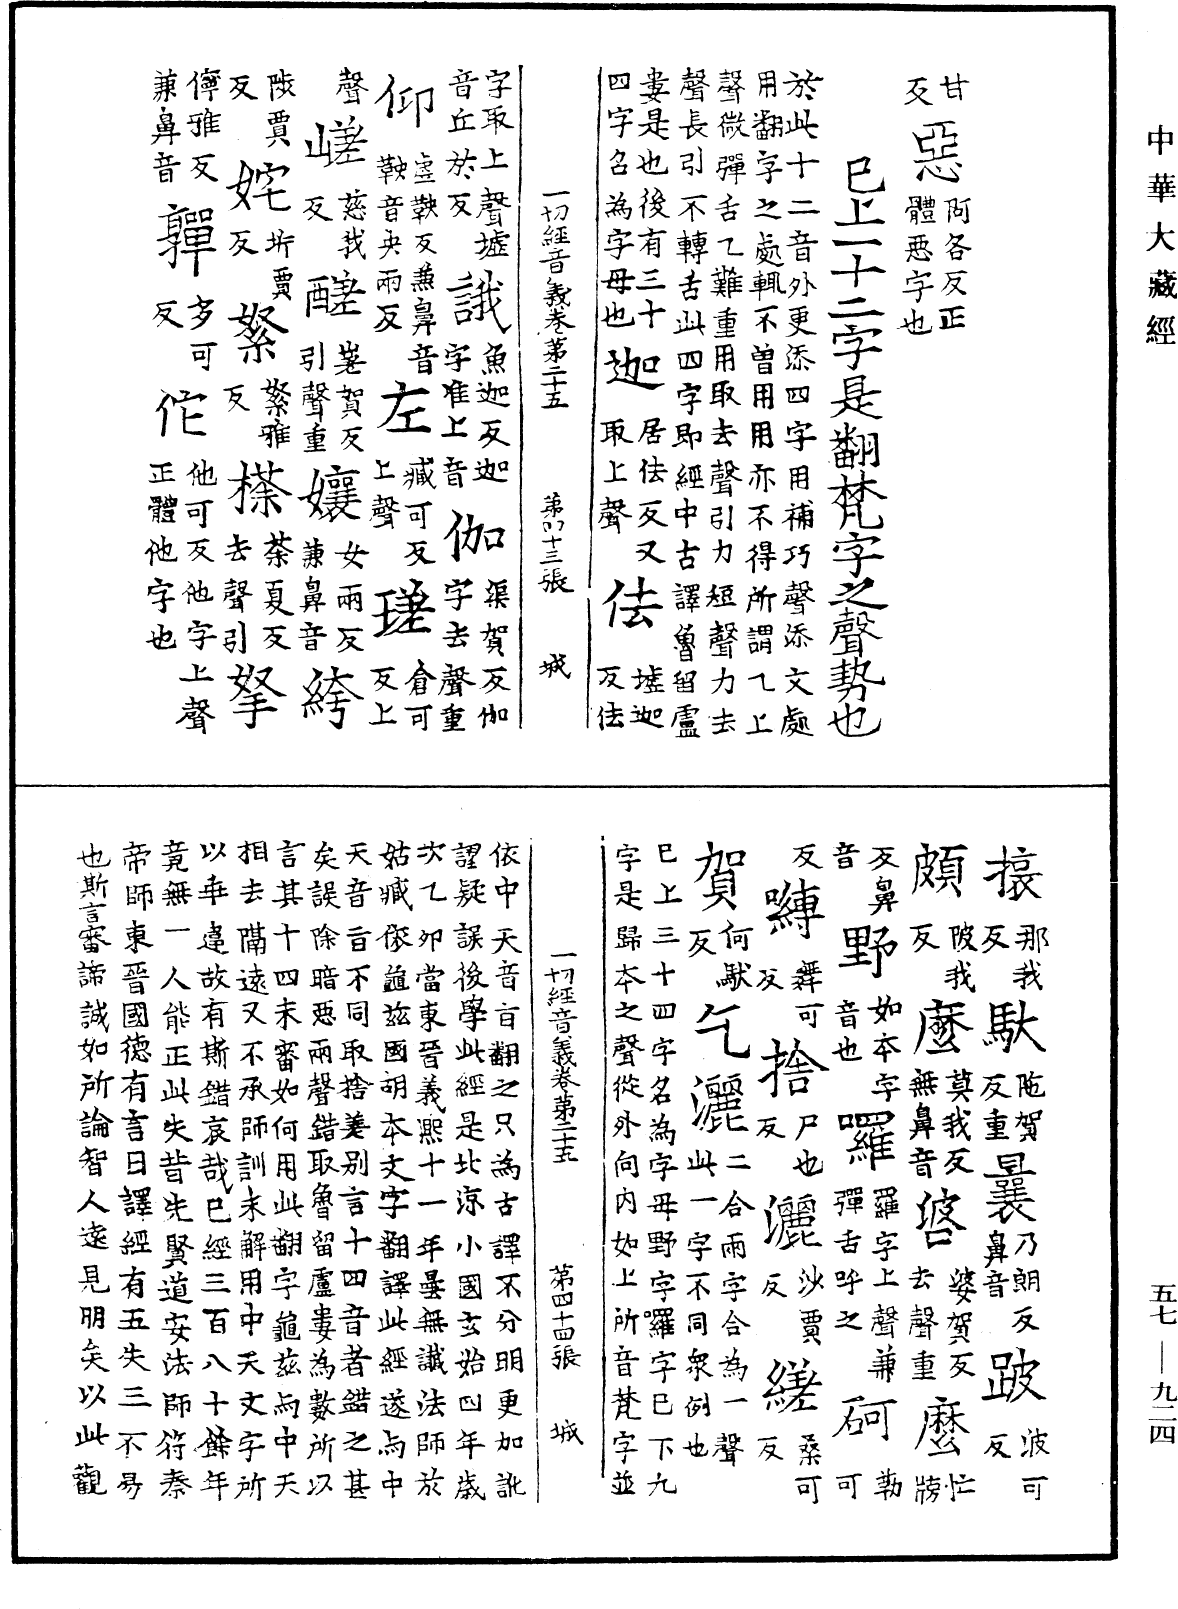 中華大藏經
甘
反
惡
阿各反正
體惡字也
巳上一十二字是翻梵字之聲勢也
於此十二音外更添四字用補巧聲添文處
用翻字之處輒不曾用用亦不得所謂乙上
聲微彈舌乙難重用取去聲引力短聲力去
聲長引不轉舌此四字即經中古譯魯留盧
婁是也後有三十
四字名為字母也
迦
居佉反又
取上聲
佉
墟迦
反佉
一切經音義卷第二十五 第四十三張 城
字取上聲墟
音丘於反
誐
魚迦反迦
字准上音
伽
渠賀反伽
字去聲重
仰
虛鞅反兼鼻音
鞅音央兩反
左
臧可反
上聲
瑳
倉可
反上
聲
嵯
慈我
反
醝
嵳賀反
引聲重
孃
女兩反
兼鼻音
絝
陟賈
反
姹
坼賈
反
絮
絮雅
反
搽
茶夏反
去聲引
拏
儜雅反
兼鼻音
嚲
多可
反
佗
他可反他字上聲
正體他字也
攘
那我
反
馱
陁賀
反重
曩
乃朗反
鼻音
跛
波可
反
頗
陂我
反
麼
莫我反
無鼻音
㗑
婆賀反
去聲重
麽
忙牓
反鼻
音
野
如本字
音也
囉
羅字上聲兼
彈舌呼之
砢
勒可
反
嚩
舞可
反
捨
尸也
反
灑
沙賈
反
縒
桑可
反
賀
何馱
反
乞灑
二合兩字合為一聲
此一字不同衆例也
巳上三十四字名為字母野字囉字巳下九
字是歸本之聲從外向內如上所音梵字並
一切經音義卷第二十五 第四十四張 城
依中天音旨翻之只為古譯不分明更加訛
謬疑誤後學此經是北涼小國玄始四年歲
次乙卯當東晉義熙十一年曇無讖法師於
姑臧依龜茲國胡本文字翻譯此經遂与中
天音旨不同取捨差別言十四音者錯之甚
矣誤除暗惡兩聲錯取魯留盧婁為數所以
言其十四未審如何用此翻字龜茲与中天
相去隔遠又不承師訓未解用中天文字所
以乖違故有斯錯哀哉巳經三百八十餘年
竟無一人能正此失昔先賢道安法師苻秦
帝師東晉國德有言曰譯經有五失三不易
也斯言審諦誠如所論智人遠見明矣以此觀
五七—九二四